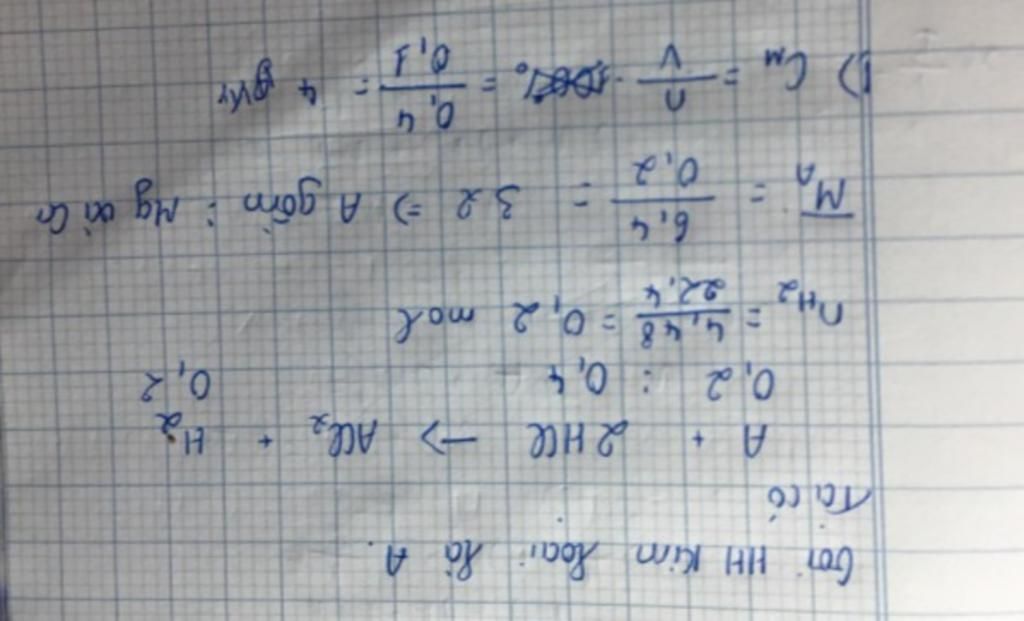 Gọi HH kim loại là A.
Ta có
A + 2HCl -> ACl₂ + H₂
0,2 : 0,4 0,2
nH₂ = 4,48/22,4 = 0,2 mol
M̅A = 6,4/0,2 = 32 => A gồm : Mg và Ca
b) CM = n/V = 0,4/0,1 = 4